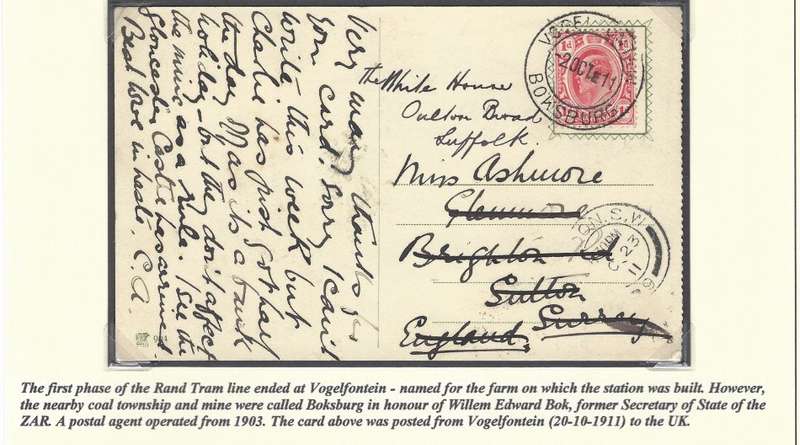 Very many thanks for
your card. Sorry I can't
write this week but
Charlie has just got half
the day is a bank
holiday - but they don't affect
the mine as a rule. I see the
Gloucester Castle has arrived.
Best love in haste, C.A.
The White House
Oulton Broad
Suffolk.
Miss Ashmore
Glenmore
Brighton Rd
Sutton
Surrey
England
BOKSBURG
20 OCT 11
TON.S.W
The first phase of the Rand Tram line ended at Vogelfontein - named for the farm on which the station was built. However,
the nearby coal township and mine were called Boksburg in honour of Willem Edward Bok, former Secretary of State of the
ZAR. A postal agent operated from 1903. The card above was posted from Vogelfontein (20-10-1911) to the UK.